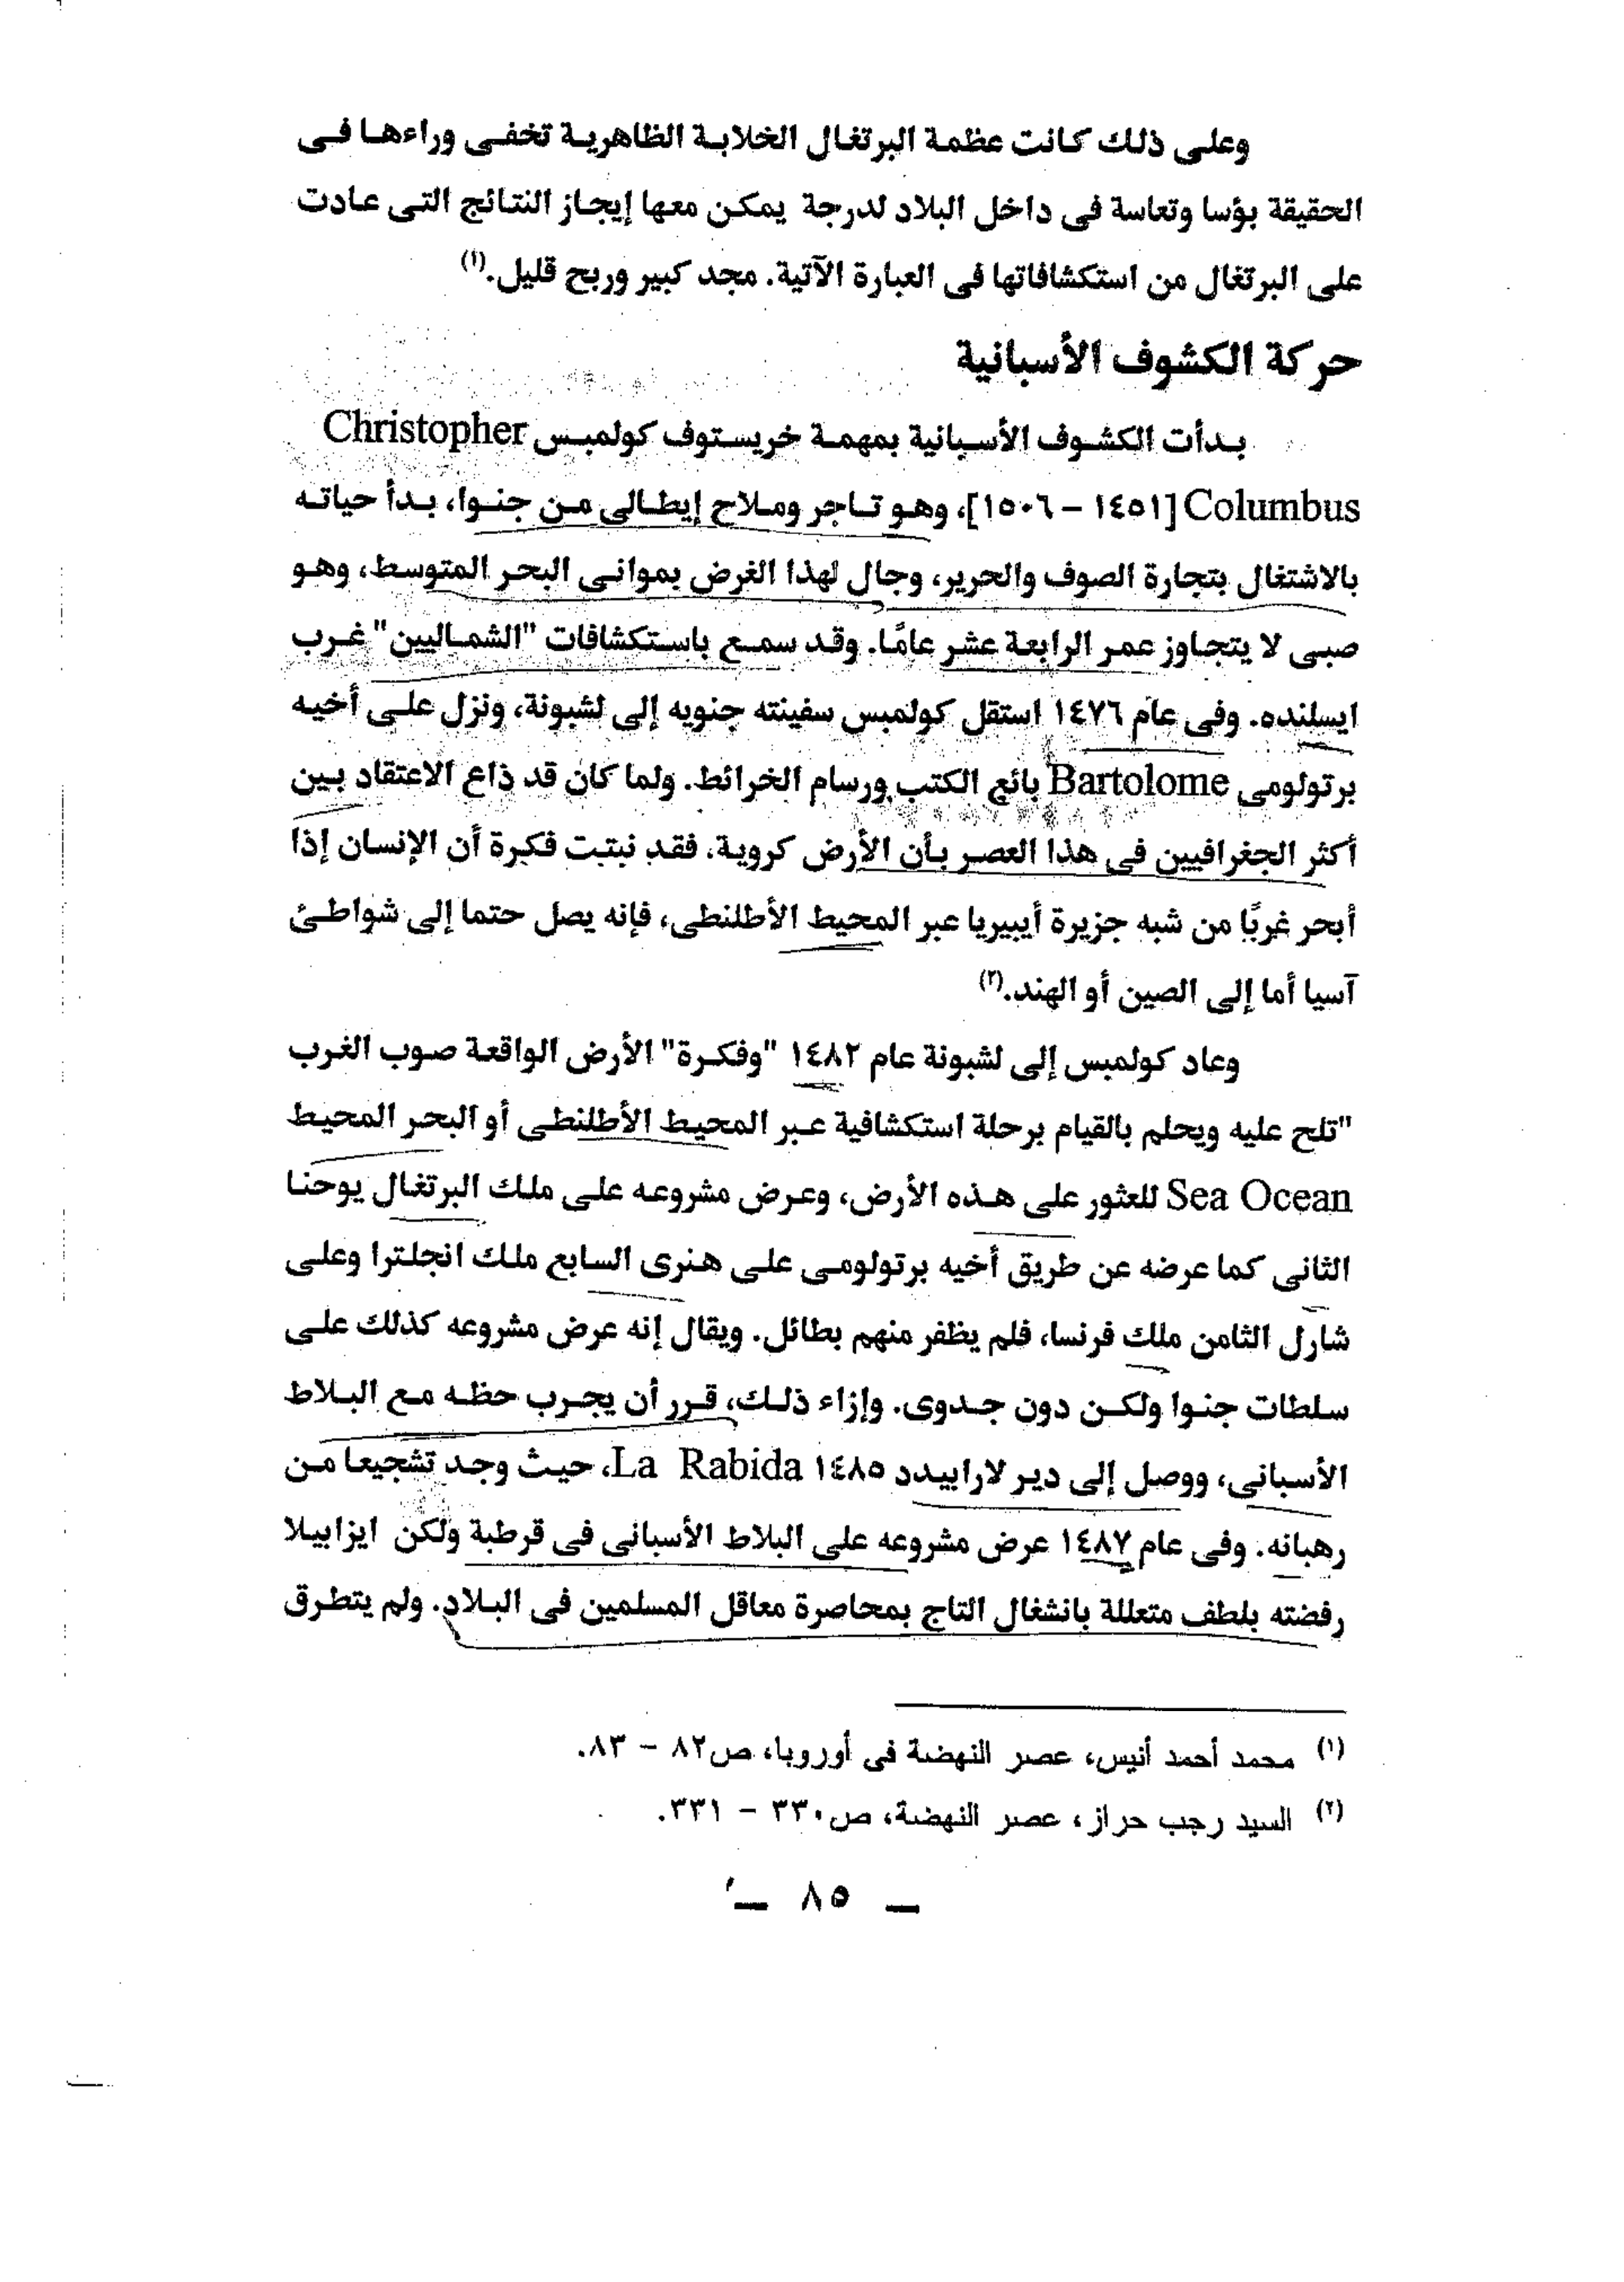 وعلى ذلك كانت عظمة البرتغال الخلابة الظاهرية تخفى وراءها فى
الحقيقة بؤسا وتعاسة فى داخل البلاد لدرجة يمكن معها إيجاز النتائج التى عادت
على البرتغال من استكشافاتها فى العبارة الآتية. مجد كبير وربح قليل.(١)
حركة الكشوف الأسبانية
بدأت الكشوف الأسبانية بمهمة خريستوف كولمبس Christopher
Columbus [١٤٥١ – ١٥٠٦]، وهو تاجر وملاح إيطالى من جنوا، بدأ حياته
بالاشتغال بتجارة الصوف والحرير، وجال لهذا الغرض بموانى البحر المتوسط، وهو
صبى لا يتجاوز عمر الرابعة عشر عامًا. وقد سمع باستكشافات "الشماليين" غرب
ايسلنده. وفى عام ١٤٧٦ استقل كولمبس سفينته جنويه إلى لشبونة، ونزل على أخيه
برتولومى Bartolome بائع الكتب ورسام الخرائط. ولما كان قد ذاع الاعتقاد بين
أكثر الجغرافيين فى هذا العصر بأن الأرض كروية. فقد نبتت فكرة أن الإنسان إذا
أبحر غربًا من شبه جزيرة أيبيريا عبر المحيط الأطلنطى، فإنه يصل حتما إلى شواطئ
آسيا أما إلى الصين أو الهند.(٢)
وعاد كولمبس إلى لشبونة عام ١٤٨٢ "وفكرة" الأرض الواقعة صوب الغرب
"تلح عليه ويحلم بالقيام برحلة استكشافية عبر المحيط الأطلنطى أو البحر المحيط
Sea Ocean للعثور على هذه الأرض، وعرض مشروعه على ملك البرتغال يوحنا
الثانى كما عرضه عن طريق أخيه برتولومى على هنرى السابع ملك انجلترا وعلى
شارل الثامن ملك فرنسا، فلم يظفر منهم بطائل. ويقال إنه عرض مشروعه كذلك على
سلطات جنوا ولكن دون جدوى. وإزاء ذلك، قرر أن يجرب حظه مع البلاط
الأسبانى، ووصل إلى دير لارابيدد ١٤٨٥ La Rabida، حيث وجد تشجيعا من
رهبانه. وفى عام ١٤٨٧ عرض مشروعه على البلاط الأسبانى فى قرطبة ولكن ايزابيلا
رفضته بلطف متعللة بانشغال التاج بمحاصرة معاقل المسلمين فى البلاد. ولم يتطرق
(١) محمد أحمد أنيس، عصر النهضة فى أوروبا، ص٨٢ – ٨٣.
(٢) السيد رجب حراز، عصر النهضة، ص٣٣٠ – ٣٣١.
– ٨٥ –